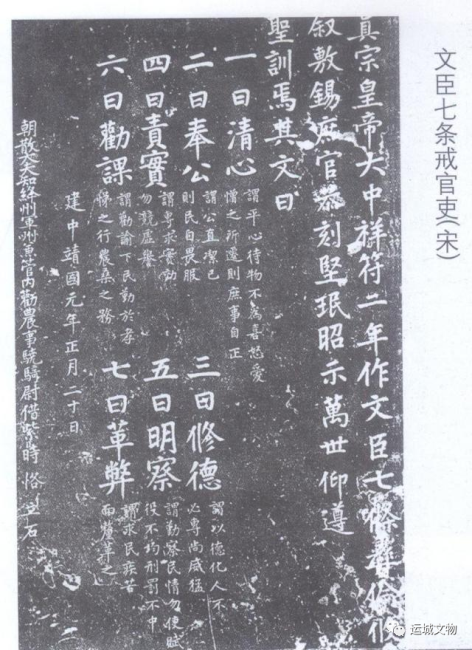 文臣七条戒官吏(宋)
真宗皇帝大中祥符二年作文臣七條
叙敷錫庶官恭刻堅珉昭示萬世仰遵
聖訓焉其文曰
一曰清心
謂平心待物不爲喜怒愛
憎之所遷則庶事自正
二曰奉公
謂公直潔己
則民自畏服
三曰修德
謂以德化人不
必專尚威猛
四曰責實
謂專求實効
勿競虛譽
五曰明察
謂勤察民情勿使賦
役不均刑罰不中
六曰勸課
謂勸諭下民勤於孝
悌之行農桑之務
七曰革弊
謂求民疾苦
而釐革之
建中靖國元年正月二十日
朝散大夫知絳州軍州事管内勸農事驍騎尉借紫時恪立石
运城文物